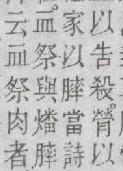 以告殺膋以
家以膟當詩
血祭與燔膟
云血祭肉者